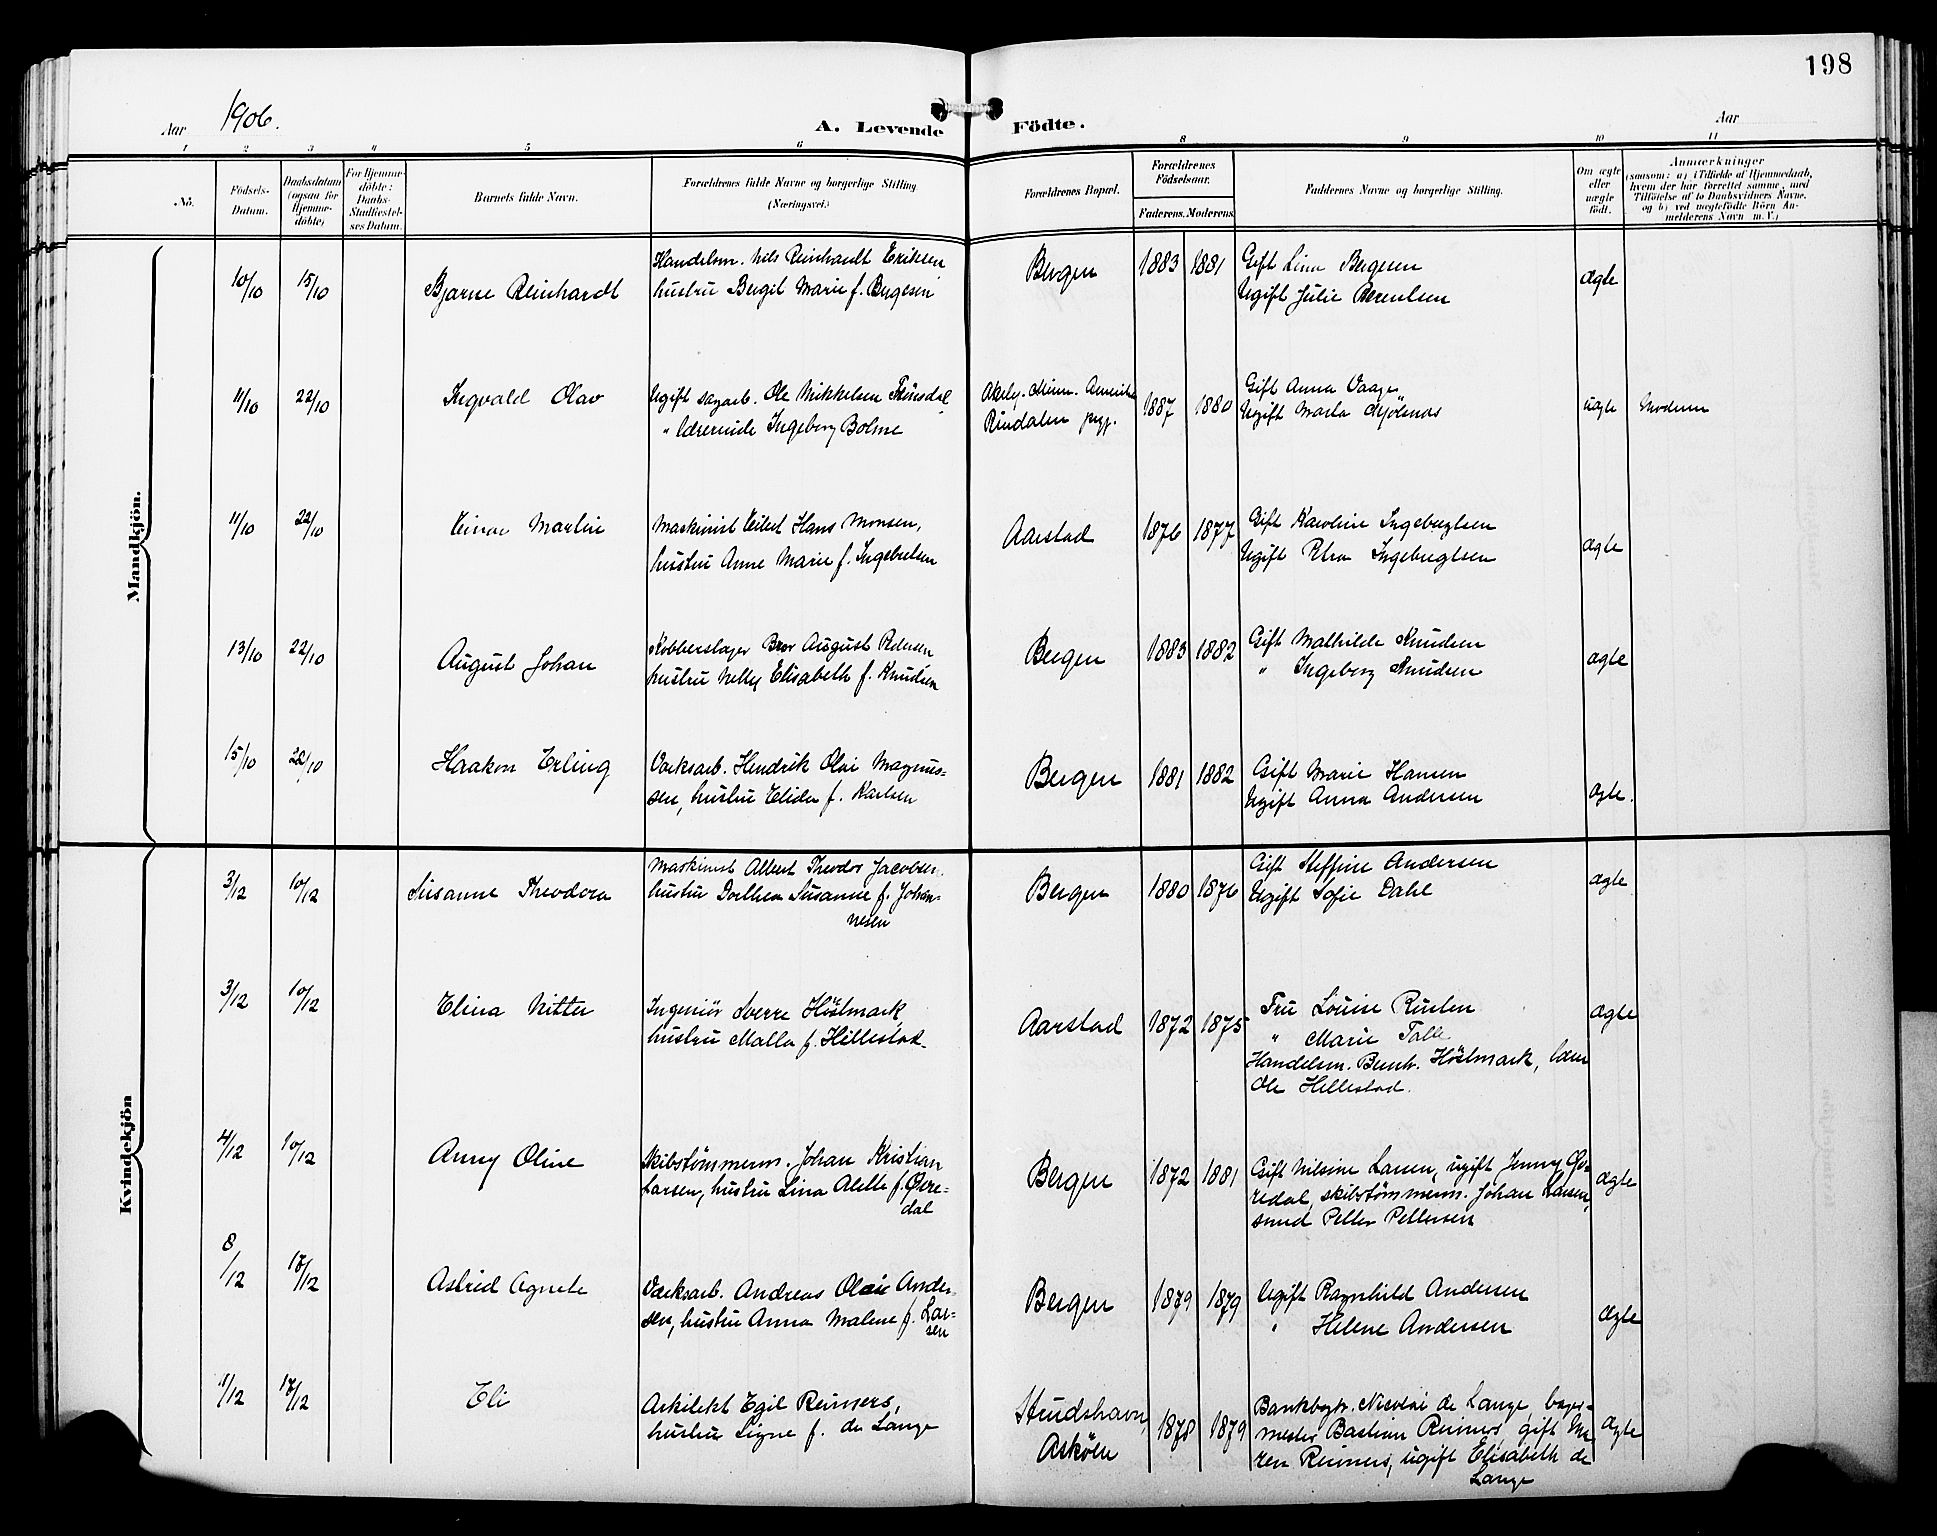 198
Aar 1906.
A. Levende Födte.
Aar
1 2 3 4 5 6 8 9 10 11
No.
Födsels-Datum.
Daabsdatum (ogsaa for Hjemmedöbte)
For Hjemmedöbte: Daabs-Stadfæstelses Datum.
Barnets fulde Navn.
Forældrenes fulde Navne og borgerlige Stilling (Næringsvei.)
Forældrenes Bopæl.
Forældrenes Födselsaar.
Faderens. Moderens.
Faddernes Navne og borgerlige Stilling.
Om ægte eller uægte födt.
Anmærkninger
(saasom: a) i Tilfælde af Hjemmedaab,
hvem der har forrettet samme, med
Tilföielse af to Daabsvidners Navne,
og b) ved uægtefödte Börn An-
melderens Navn m. V.)
Mandkjön.
10/10 15/10 Bjarne Reinhardt
Handelsm. Nils Reinhardt Eriksen
hustru Bergit Marie f. Bergesen
Bergen 1883 1881
Gift Lina Bergesen
Ugift Julie Berentsen
ægte
11/10 22/10 Ingvald Olav
Ugift sagarb. Ole Mikkelsen
" Lærerinde Ingeborg Bolme
Akely. Minn. Amerika
Rindalen prgj.
1887 1880
Gift Anna Vaage
Ugift Marta Mjölsnes
uægte Moderen
11/10 22/10 Einar Martin
Maskinist Eilert Hans Monsen,
hustru Anne Marie f. Ingebretsen
Aarstad 1876 1877
Gift Karoline Ingebrigtsen
Ugift Petra Ingebrigtsen
ægte
13/10 22/10 August Johan
Kobberslager Bror August Petersen
hustru Nelly Elisabeth f. Knudsen
Bergen 1883 1882
Gift Mathilde Knudsen
" Ingeborg Knudsen
ægte
15/10 22/10 Haakon Erling
Værksarb. Hendrik Olai Magnus-
sen, hustru Elida f. Karlsen
Bergen 1881 1882
Gift Marie Hansen
Ugift Anna Andersen
ægte.
Kvindekjön
3/12 10/12 Susanne Theodora
Maskinist Albert Theodor Jacobsen.
hustru Dorthea Susanne f. Johan-
nesen
Bergen 1880 1876
Gift Steffine Andersen
Ugift Sofie Dahl
ægte
3/12 10/12 Elina Nitter
Ingeniör Sverre Höstmark,
hustru Malla f. Hillestad.
Aarstad 1872 1875
Fru Louise Rusten
" Marie Talle
Handelsm. Bernh. Höstmark,
Ole Hillestad.
ægte
4/12 10/12 Anny Oline
Skibstömmerm. Johan Kristian
Larsen, hustru Lina Alette f. Øvre-
dal
Bergen 1872 1881
Gift Nilsine Larsen, ugift Jenny Øv-
redal, skibstömmerm. Johan Larsen,
smed Petter Pettersen
ægte
8/12 17/12 Astrid Agnete
Værksarb. Andreas Olai Ander-
sen, hustru Anna Malene f. Lar-
sen
Bergen 1879 1879
Ugift Ragnhild Andersen
" Helene Andersen
ægte
11/12 17/12 Eli
Arkitekt Egil Reimers,
hustru Signe f. de Lange
Strudshavn,
Asköen
1878 1879
Bankbogh. Nicolai de Lange, bager-
mester Bastian Reimers, gift Ma-
ren Reimers, ugift Elisabeth de
Lange
ægte